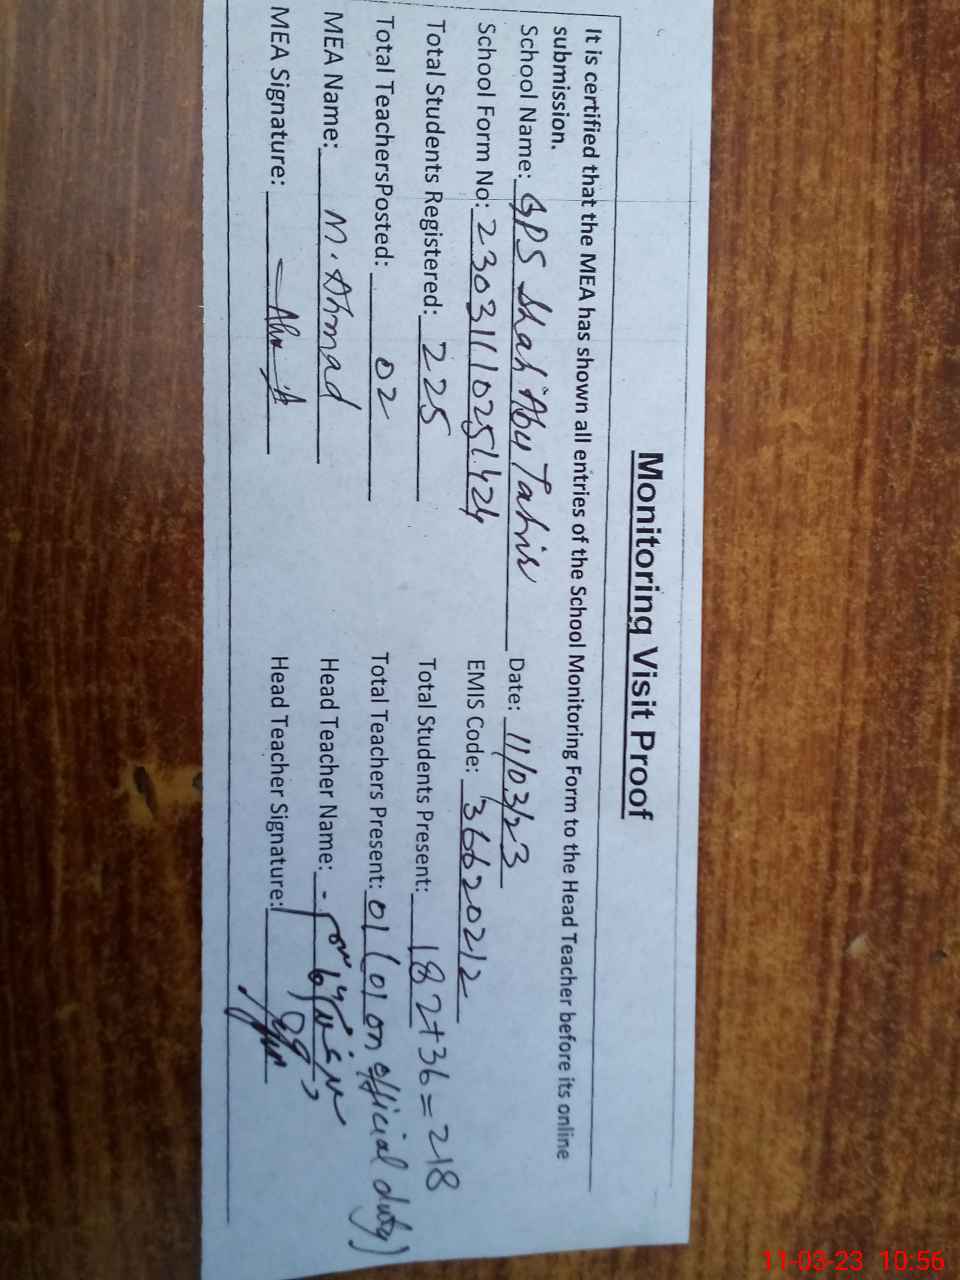 Monitoring Visit Proof
It is certified that the MEA has shown all entries of the School Monitoring Form to the Head Teacher before its online
submission.
School Name: GPS Shah Abu Tahir Date: 11/03/23
School Form No: 2303110251424 EMIS Code: 36620212
Total Students Registered: 225 Total Students Present: 182+36=218
Total TeachersPosted: 02 Total Teachers Present: 01 (01 on official duty)
MEA Name: M. Ahmad Head Teacher Name:
MEA Signature: Head Teacher Signature:
11-03-23 10:56